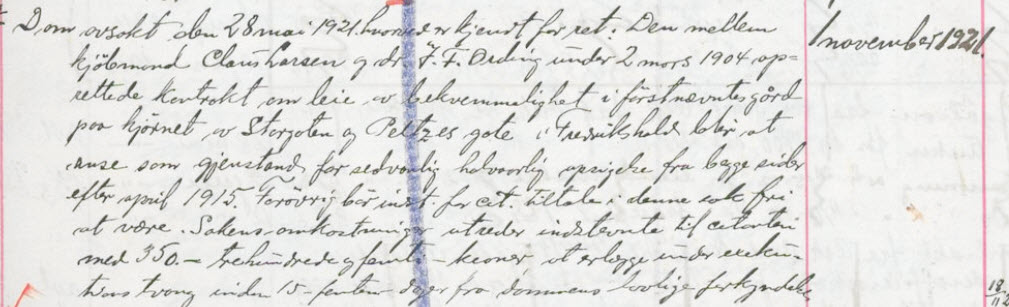 Dom avsakt den 28 mai 1921 hvorved er kjendt for ret: Den mellem
kjöbmand Claus Larsen og dr. F. F. Ording under 2 mars 1904 op-
rettede kontrakt om leie av bekvemmelighet i förstnævntes gård
paa hjörnet av Storgaten og Peltzes gate i Fredrikshald blir at
anse som gjenstand for sedvanlig halvaarlig opsigelse fra begge sider
efter april 1915. Forövrig bör indst. for cit. tiltale i denne sak fri
at være. Sakens omkostninger utreder indstevnte til citanten
med 350.- trehundrede og femti - kroner at erlægge under exeku-
tions tvang inden 15 - femten - dager fra dommens lovlige forkyndelse
1 november 1921.